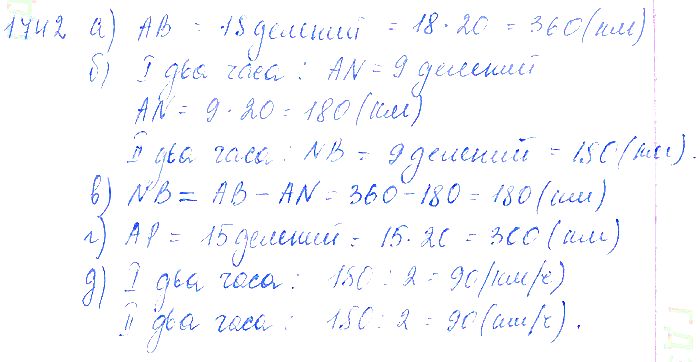 1742 а) AB = 18 делений = 18 · 20 = 360 (км)
б) I два часа: AN = 9 делений
AN = 9 · 20 = 180 (км)
II два часа: NB = 9 делений = 180 (км).
в) NB = AB - AN = 360 - 180 = 180 (км)
г) AP = 15 делений = 15 · 20 = 300 (км)
д) I два часа: 180 : 2 = 90 (км/ч)
II два часа: 180 : 2 = 90 (км/ч).